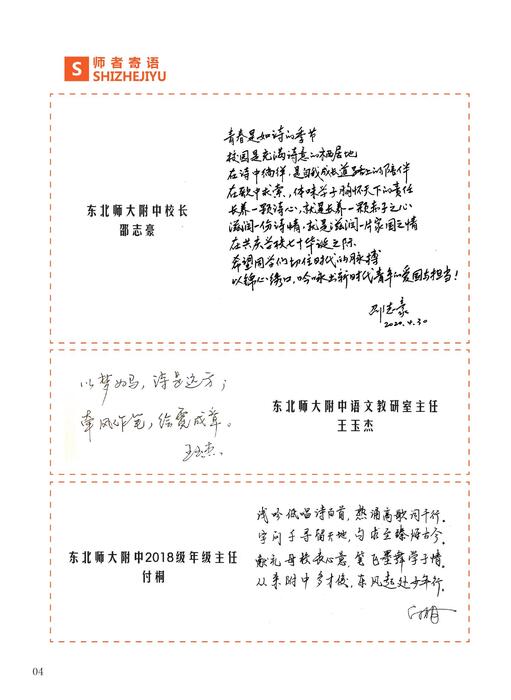 S 师者寄语
SHIZHEJIYU
东北师大附中校长
邵志豪
青春是如诗的季节
校园是充满诗意的栖居地
在诗中徜徉,是自我成长道路上的陪伴
在歌中求索,体味学子胸怀天下的责任
长养一颗诗心,就是长养一颗赤子之心
滋润一份诗情,就是滋润一片家国之情
在共庆学校七十华诞之际
希望同学们切住时代的脉搏
以锦心绣口,吟咏出新时代青年的爱国与担当!
邵志豪
2020.4.30
以梦为马,诗是远方;
牵风作笔,绘霞成章。
王玉杰
东北师大附中语文教研室主任
王玉杰
东北师大附中2018级年级主任
付桐
浅吟低唱诗百首,热诵高歌词千行。
字问子寻留天地,句求至臻炼古今。
献礼母校表心意,笔飞墨舞学子情。
从来附中多才俊,东风起处少年行。
04